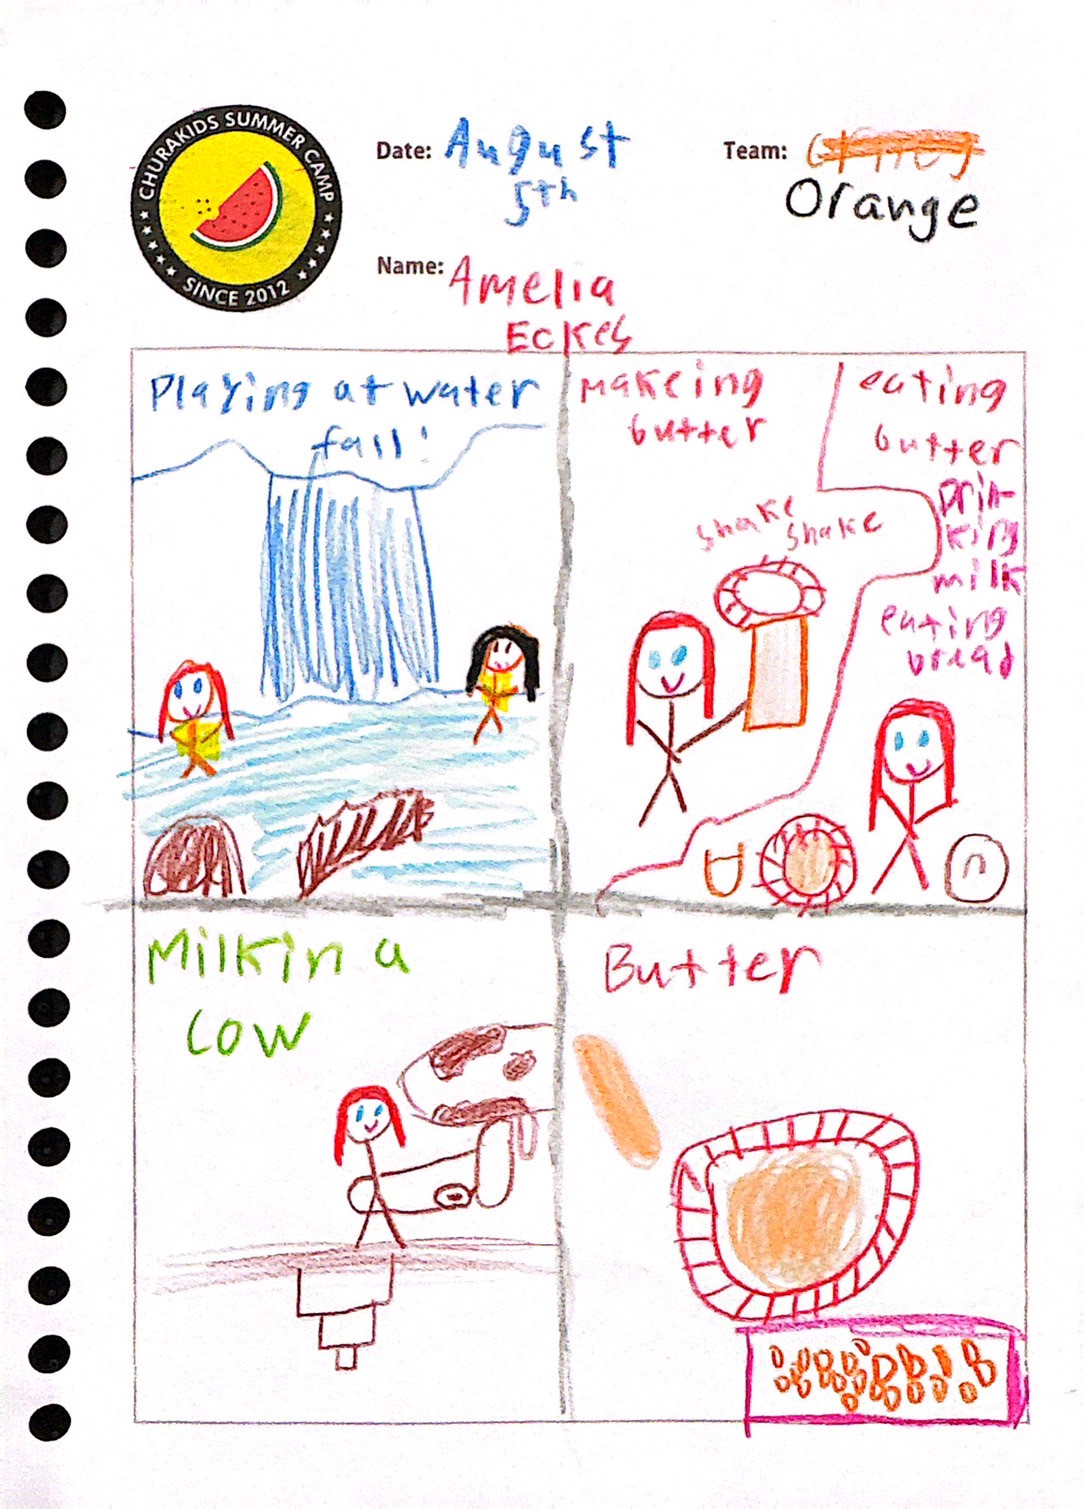 CHURAKIDS SUMMER CAMP
SINCE 2012
Date: August
5th
Team:
Orange
Name: Amelia
Eckes
Playing at water
fall!
Makeing
butter
shake
shake
eating
butter
Drin-
king
milk
eating
bread
Milkin a
cow
Butter